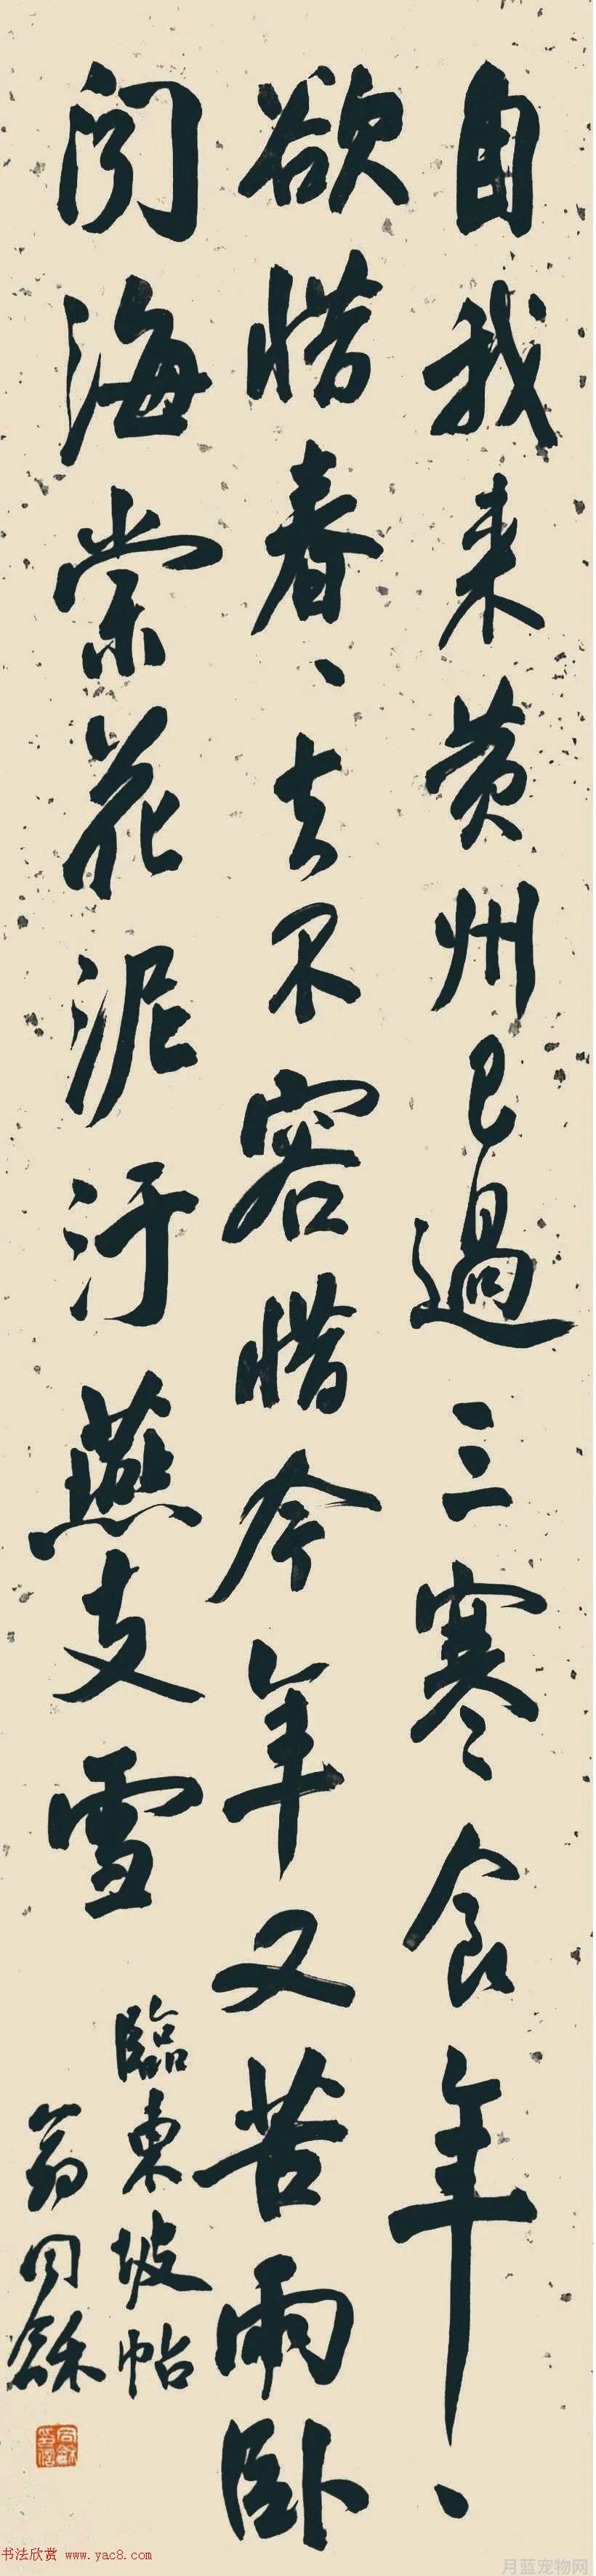 自我来黄州已過三寒食年、
欲惜春、去不容惜今年又苦雨卧
聞海棠花泥汙燕支雪
臨東坡帖
翁同龢
同龢印信
书法欣赏 www.yac8.com
月蓝宠物网